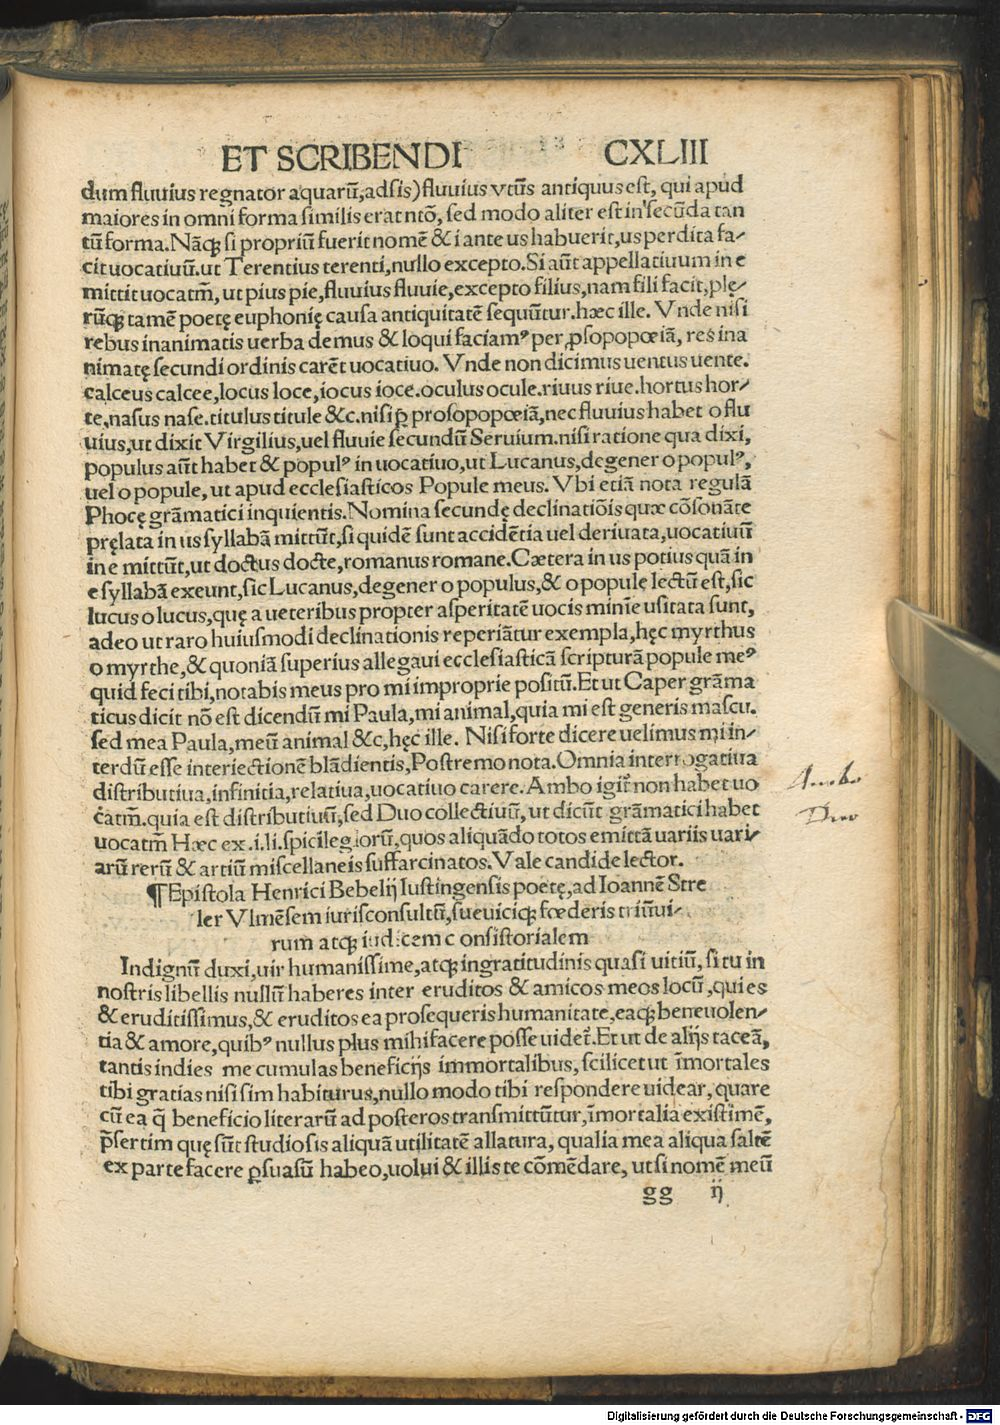 ET SCRIBENDI CXLIII
dum fluuius regnator aquarũ,adsis)fluuius vtũs antiquus est, qui apud
maiores in omni forma similis erat ntõ, sed modo aliter est in secũda tan
tũ forma. Nãqꝫ si propriũ fuerit nomẽ & i ante us habuerit,us perdita fa⸗
cit uocatiuũ.ut Terentius terenti,nullo excepto.Si aũt appellatiuum in e
mittit uocatm̃, ut pius pie,fluuius fluuie,excepto filius,nam fili facit,plę⸗
rũqꝫ tamẽ poetę euphonię causa antiquitatẽ sequũtur.hæc ille. Vnde nisi
rebus inanimatis uerba demus & loqui faciamꝰ per ꝓsopopœiã, res ina
nimatę secundi ordinis carẽt uocatiuo. Vnde non dicimus uentus uente.
calceus calcee,locus loce,iocus ioce.oculus ocule.riuus riue.hortus hor⸗
te,nasus nase.titulus titule &c.nisi p̱ prosopopœiã,nec fluuius habet o flu
uius,ut dixit Virgilius,uel fluuie secundũ Seruium.nisi ratione qua dixi,
populus aũt habet & populꝰ in uocatiuo,ut Lucanus,degener o populꝰ,
uel o popule, ut apud ecclesiasticos Popule meus. Vbi etiã nota regulã
Phocę grãmatici inquientis.Nomina secundę declinatiõis quæ cõsonãte
pręlata in us syllabã mittũt,si quidẽ sunt accidẽtia uel deriuata,uocatiuũ
in e mittũt,ut doctus docte,romanus romane.Cætera in us potius quã in
e syllabã exeunt,sic Lucanus,degener o populus,& o popule lectũ est,sic
lucus o lucus,quę a ueteribus propter asperitatẽ uocis minĩe usitata sunt,
adeo ut raro huiusmodi declinationis reperiãtur exempla,hęc myrthus
o myrthe,& quoniã superius allegaui ecclesiasticã scripturã popule meꝰ
quid feci tibi,notabis meus pro mi improprie positũ.Et ut Caper grãma
ticus dicit nõ est dicendũ mi Paula,mi animal,quia mi est generis mascu.
sed mea Paula,meũ animal &c,hęc ille. Nisi forte dicere uelimus mi in⸗
terdũ esse interiectionẽ blãdientis,Postremo nota.Omnia interrogatiua
distributiua,infinitia,relatiua,uocatiuo carere.Ambo igit̃ non habet uo
catm̃.quia est distributiuũ,sed Duo collectiuũ, ut dicũt grãmatici habet
uocatm̃ Hæc ex .i.li.spicilegiorũ,quos aliquãdo totos emittã uariis uari⸗
arũ rerũ & artiũ miscellaneis suffarcinatos.Vale candide lector.
Ambo
Duo
¶Epistola Henrici Bebelij Iustingensis poetę,ad Ioannẽ Stre
ler Vlmẽsem iurisconsultũ,sueuiciqꝫ fœderis triũui⸗
rum atqꝫ iudicem consistorialem
Indignũ duxi,uir humanissime,atqꝫ ingratitudinis quasi uitiũ, si tu in
nostris libellis nullũ haberes inter eruditos & amicos meos locũ,qui es
& eruditissimus,& eruditos ea prosequeris humanitate,eaqꝫ beneuolen⸗
tia & amore,quibꝰ nullus plus mihi facere posse uidet̃.Et ut de alijs taceã,
tantis indies me cumulas beneficijs immortalibus, scilicet ut ĩmortales
tibi gratias nisi sim habiturus,nullo modo tibi respondere uidear, quare
cũ ea q̃ beneficio literarũ ad posteros transmittũtur,ĩmortalia existimẽ,
p̃sertim quę sũt studiosis aliquã utilitatẽ allatura, qualia mea aliqua saltẽ
ex parte facere ꝑsuasũ habeo,uolui & illis te cõmẽdare, ut si nomẽ meũ
gg ij
Digitalisierung gefördert durch die Deutsche Forschungsgemeinschaft - DFG